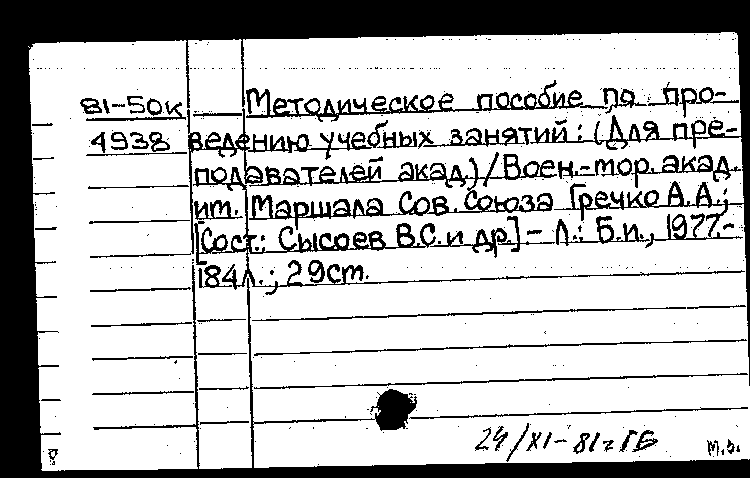 81-50к Методическое пособие по про-
4938 ведению учебных занятий: (Для пре-
подавателей акад.)/Воен.-мор. акад.
им. Маршала Сов. Союза Гречко А.А.;
[Сост.: Сысоев В.С. и др.] - Л.: Б.и., 1977.-
184л.; 29cm.
24/XI-81г ГБ
м.э.